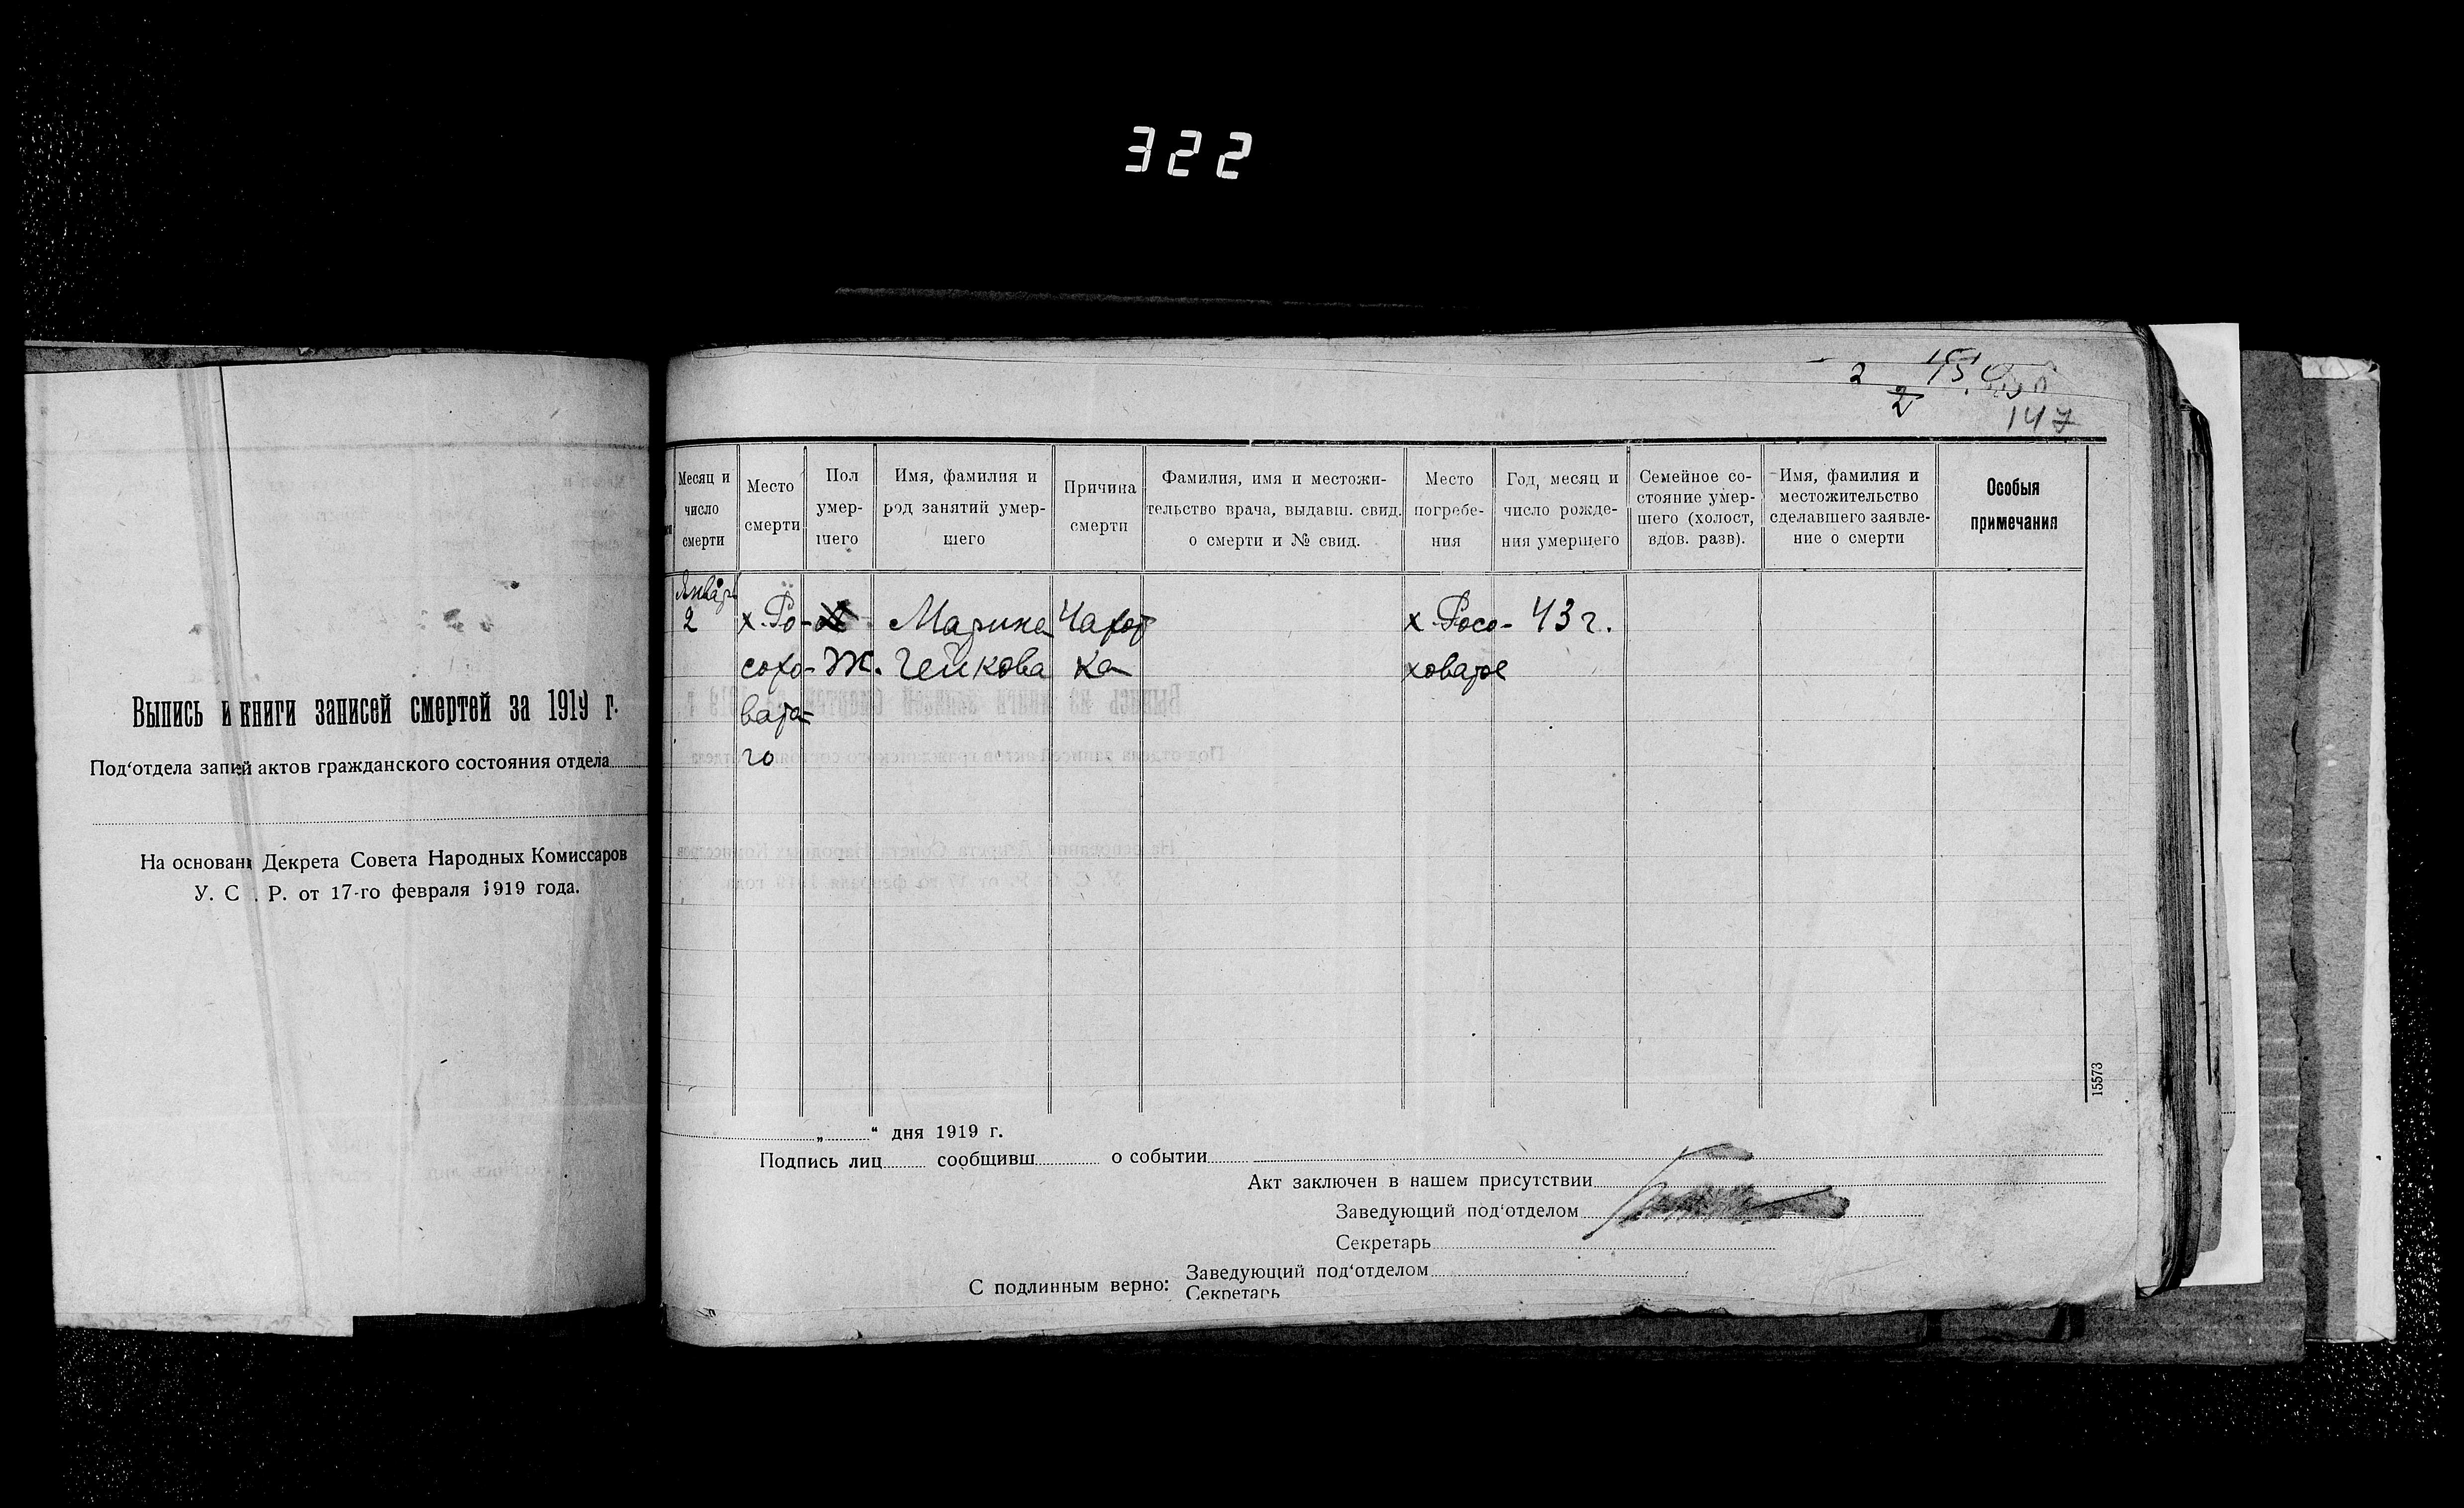 322
2 45
2
147
Выпись и книги записей смертей за 1919 г.
Под‘отдела запией актов гражданского состояния отдела
На основани Декрета Совета Народных Комиссаров
У. С . Р. от 17-го февраля 1919 года.
Месяц и число смерти
Место смерти
Пол умершего
Имя, фамилия и род занятий умершего
Причина смерти
Фамилия, имя и местожительство врача, выдавш. свид. о смерти и № свид.
Место погребения
Год, месяц и число рождения умершего
Семейное состояние умершего (холост, вдов. разв).
Имя, фамилия и местожительство сделавшего заявление о смерти
Особыя примечания
Январь
2 х. Ро- Марина Чахот х. Росо- 43 г.
сохо- Ж. Чейкова ка ховаре
вара-
го
15573
„ “ дня 1919 г.
Подпись лиц сообщивш о событии
Акт заключен в нашем присутствии
Заведующий под‘отделом
Секретарь
С подлинным верно: Заведующий под‘отделом
Секретарь